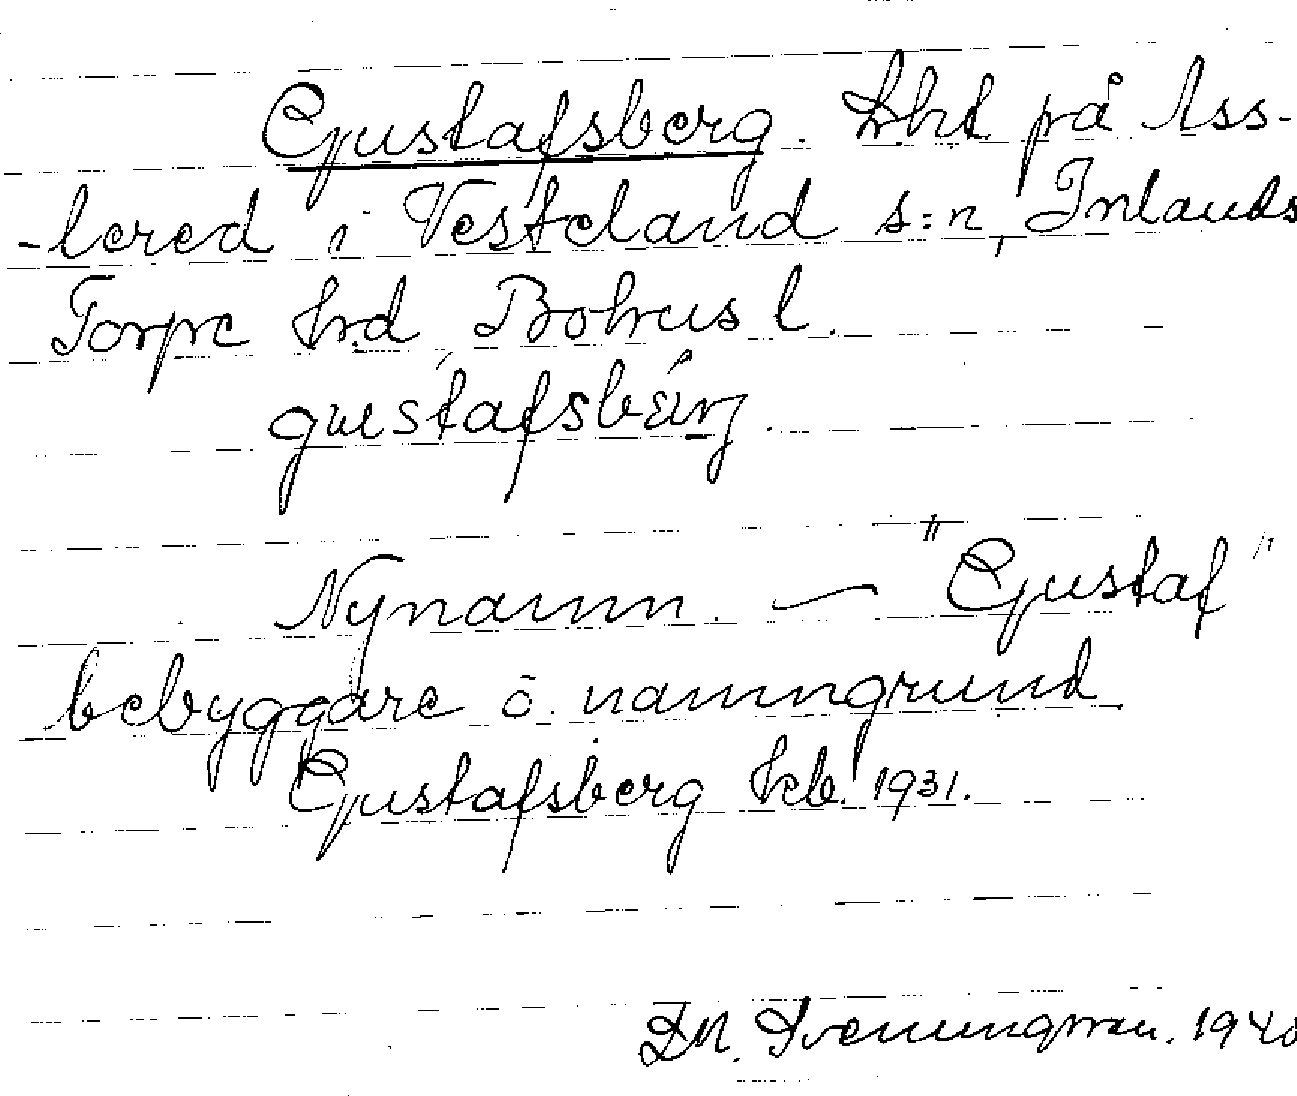 Gustafsberg. Lht på Ass-
-lered i Vesteland s:n, Inlands
Torpe hrd, Bohus l.
gustafsbärj.
Nynamn. — "Gustaf"
bebyggare o. namngrund
Gustafsberg kcb. 1931.
1940